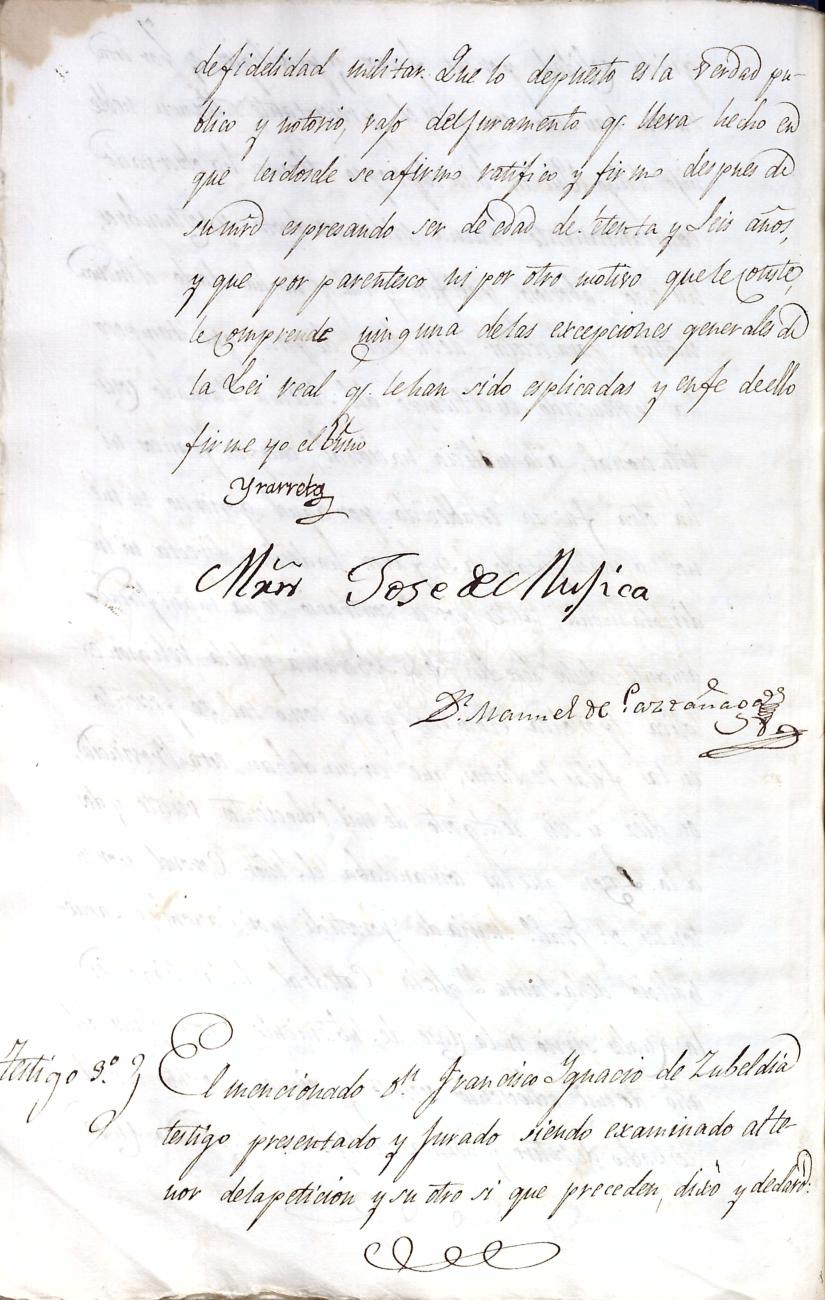 de fidelidad militar. Que lo depuesto es la verdad pu-
blico y notorio, vajo del juramento q.e lleva hecho en
que leidosele se afirmo ratifico y firmo despues de
su mrd espresando ser de edad de setenta y seis años,
y que por parentesco ni por otro motivo que le conste,
le comprende ninguna de las excepciones generales de
la Lei real q.e le han sido esplicadas y en fe de ello
firme yo el Esno
Yrarreta
Jose de Mujica
Dn. Manuel de
Testigo 3.º
El mencionado Dn. Francisco Ygnacio de Zubeldia
testigo presentado y jurado siendo examinado al te-
nor de la peticion y su otro si que preceden, dixo y declaró: